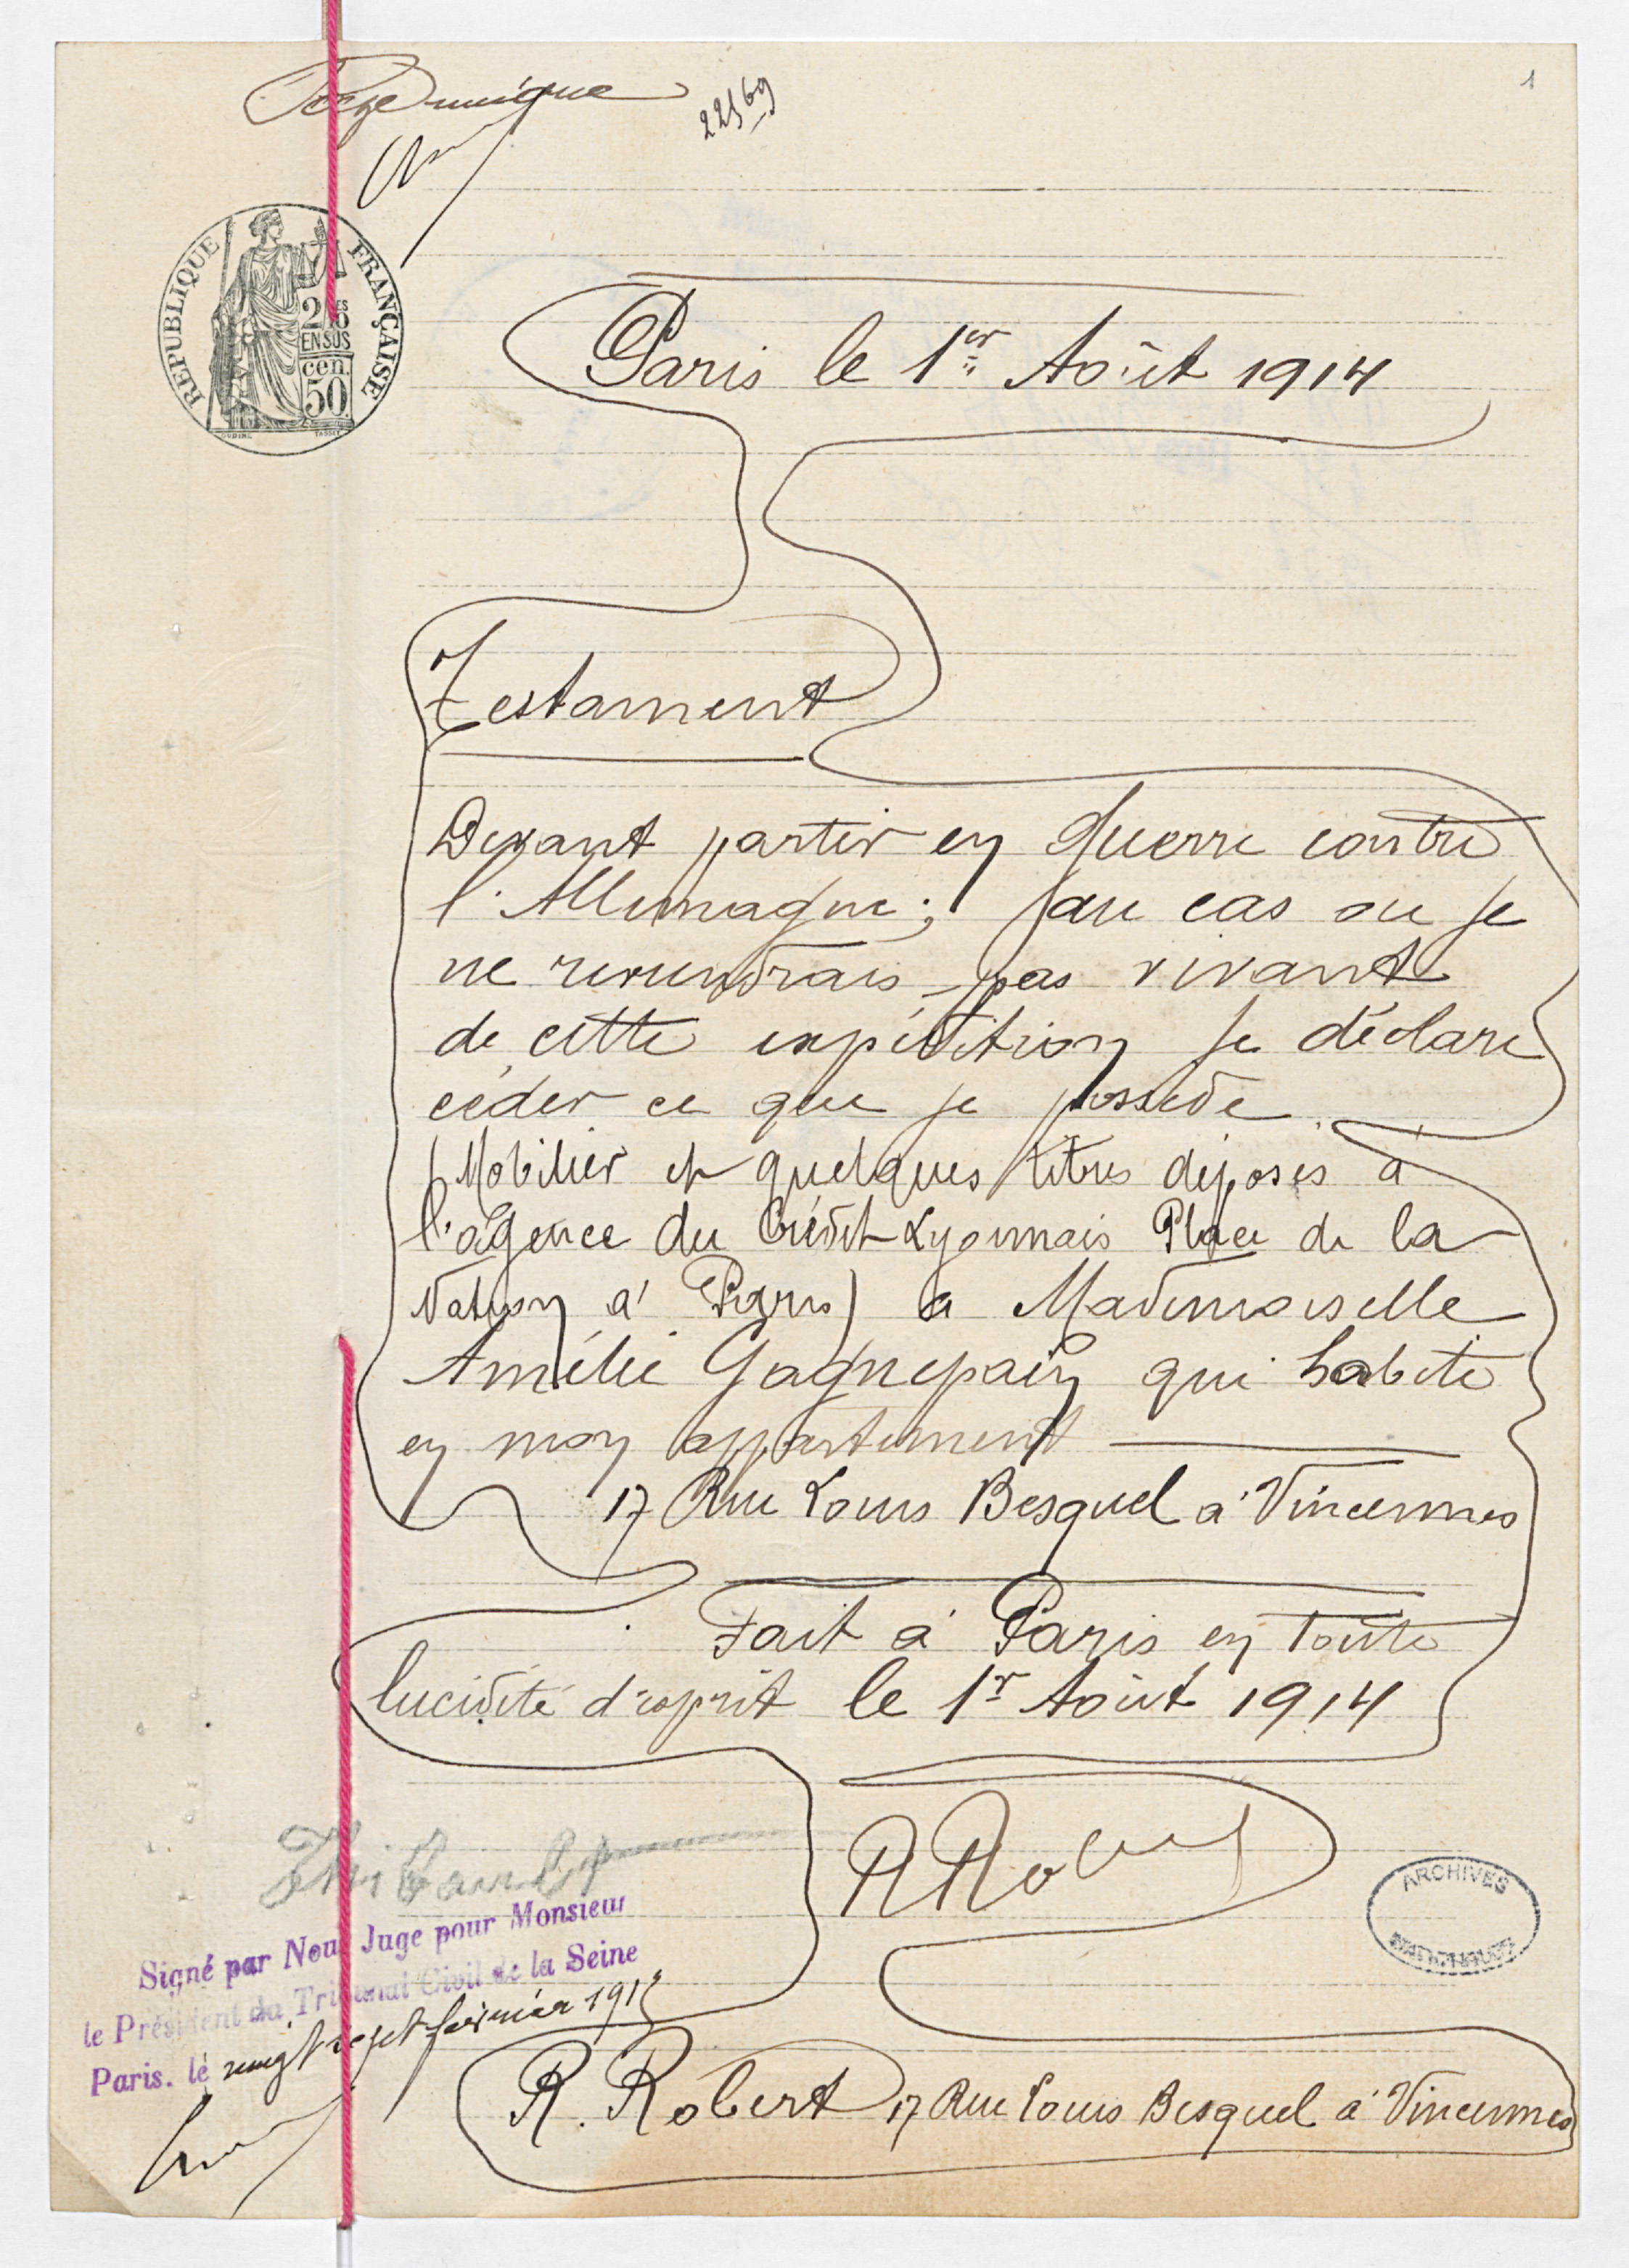 Pièce unique
22569
1
REPUBLIQUE FRANÇAISE
2/10ES
EN SUS
cen.
50
Paris le 1er Août 1914
Testament
Devant partir en Guerre contre
l'Allemagne; au cas ou je
ne reviendrais pas vivant
de cette expédition je déclare
céder ce que je possède
(Mobilier et quelques titres déposés à
l'agence du Crédit Lyonnais Place de la
Nation à Paris) à Mademoiselle
Amélie Gagnepain qui habite
en mon appartement
17 Rue Louis Besquel à Vincennes
Fait à Paris en toute
lucidité d'esprit le 1r Août 1914
R Robert
Thibault
Signé par Nous Juge pour Monsieur
le Président du Tribunal Civil de la Seine
Paris. le vingt sept février 1915
ARCHIVES
NATIONALES
R. Robert 17 Rue Louis Besquel à Vincennes